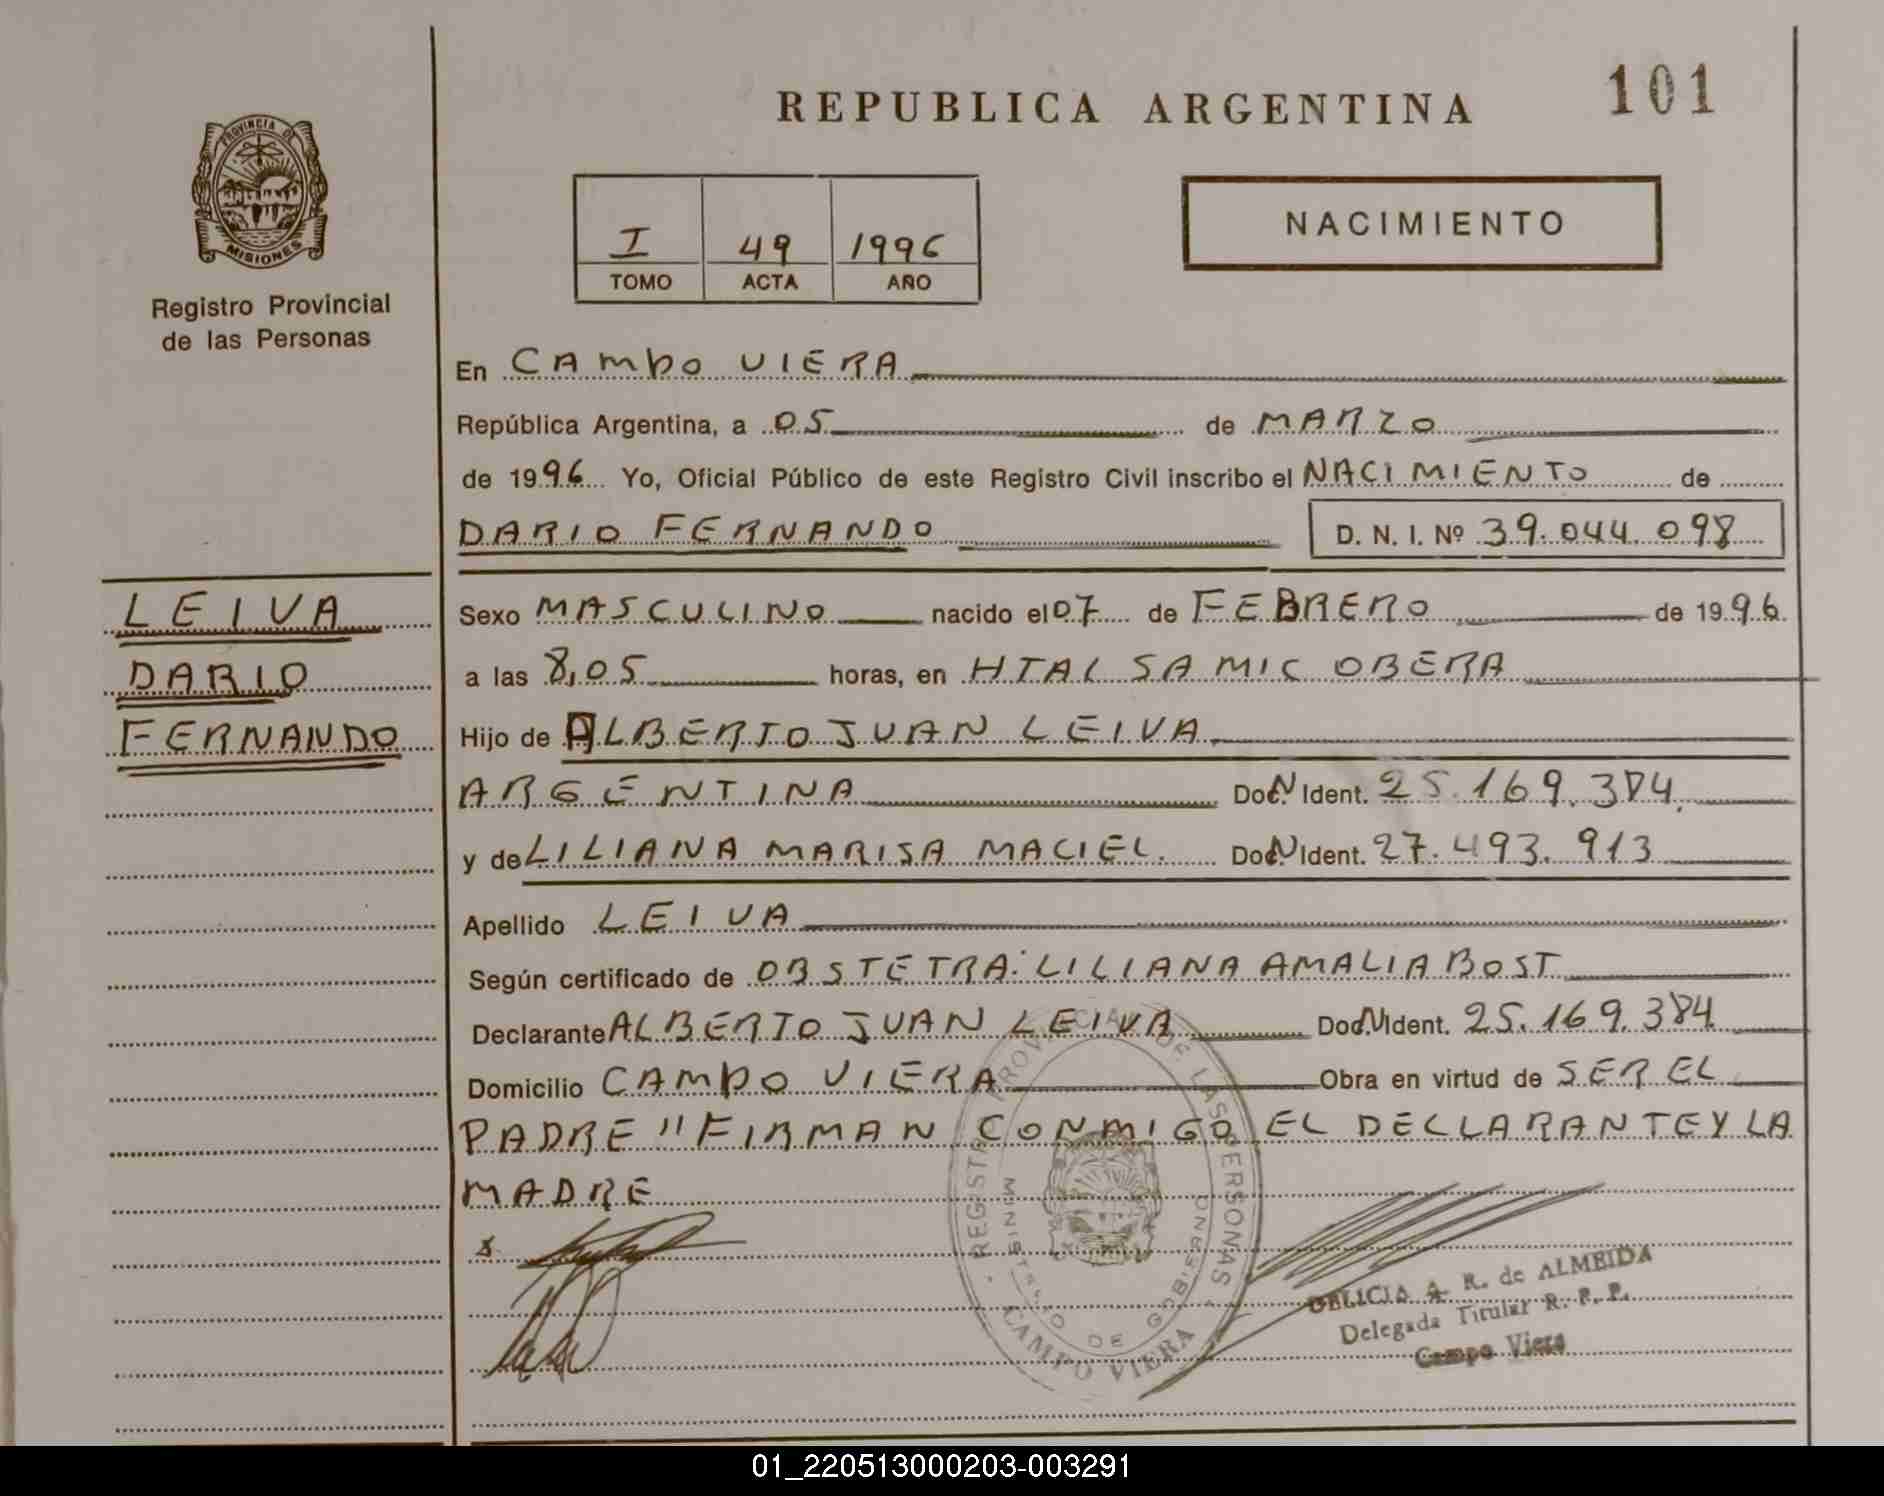 REPUBLICA ARGENTINA
101
PROVINCIA D
MISIONES
Registro Provincial
de las Personas
I 49 1996
TOMO ACTA AÑO
NACIMIENTO
En CAMPO VIERA
República Argentina, a 05 de MARZO
de 1996 Yo, Oficial Público de este Registro Civil inscribo el NACIMIENTO de
DARIO FERNANDO D. N. I. Nº 39.044.098
LEIVA
DARIO
FERNANDO
Sexo MASCULINO nacido el 07 de FEBRERO de 1996
a las 8,05 horas, en HTAL SAMIC OBERA
Hijo de ALBERTO JUAN LEIVA
ARGENTINA Doc. N Ident. 25.169.384.
y de LILIANA MARISA MACIEL. Doc. N Ident. 27.493.913
Apellido LEIVA
Según certificado de OBSTETRA: LILIANA AMALIA BOST
Declarante ALBERTO JUAN LEIVA Doc. N Ident. 25.169.384
Domicilio CAMPO VIERA Obra en virtud de SER EL
PADRE " FIRMAN CONMIGO EL DECLARANTE Y LA
MADRE
REGISTRO PROVINCIAL DE LAS PERSONAS
MINISTERIO DE GOBIERNO
CAMPO VIERA
DELICIA A. R. de ALMEIDA
Delegada Titular R. P. P.
Campo Viera
01_220513000203-003291